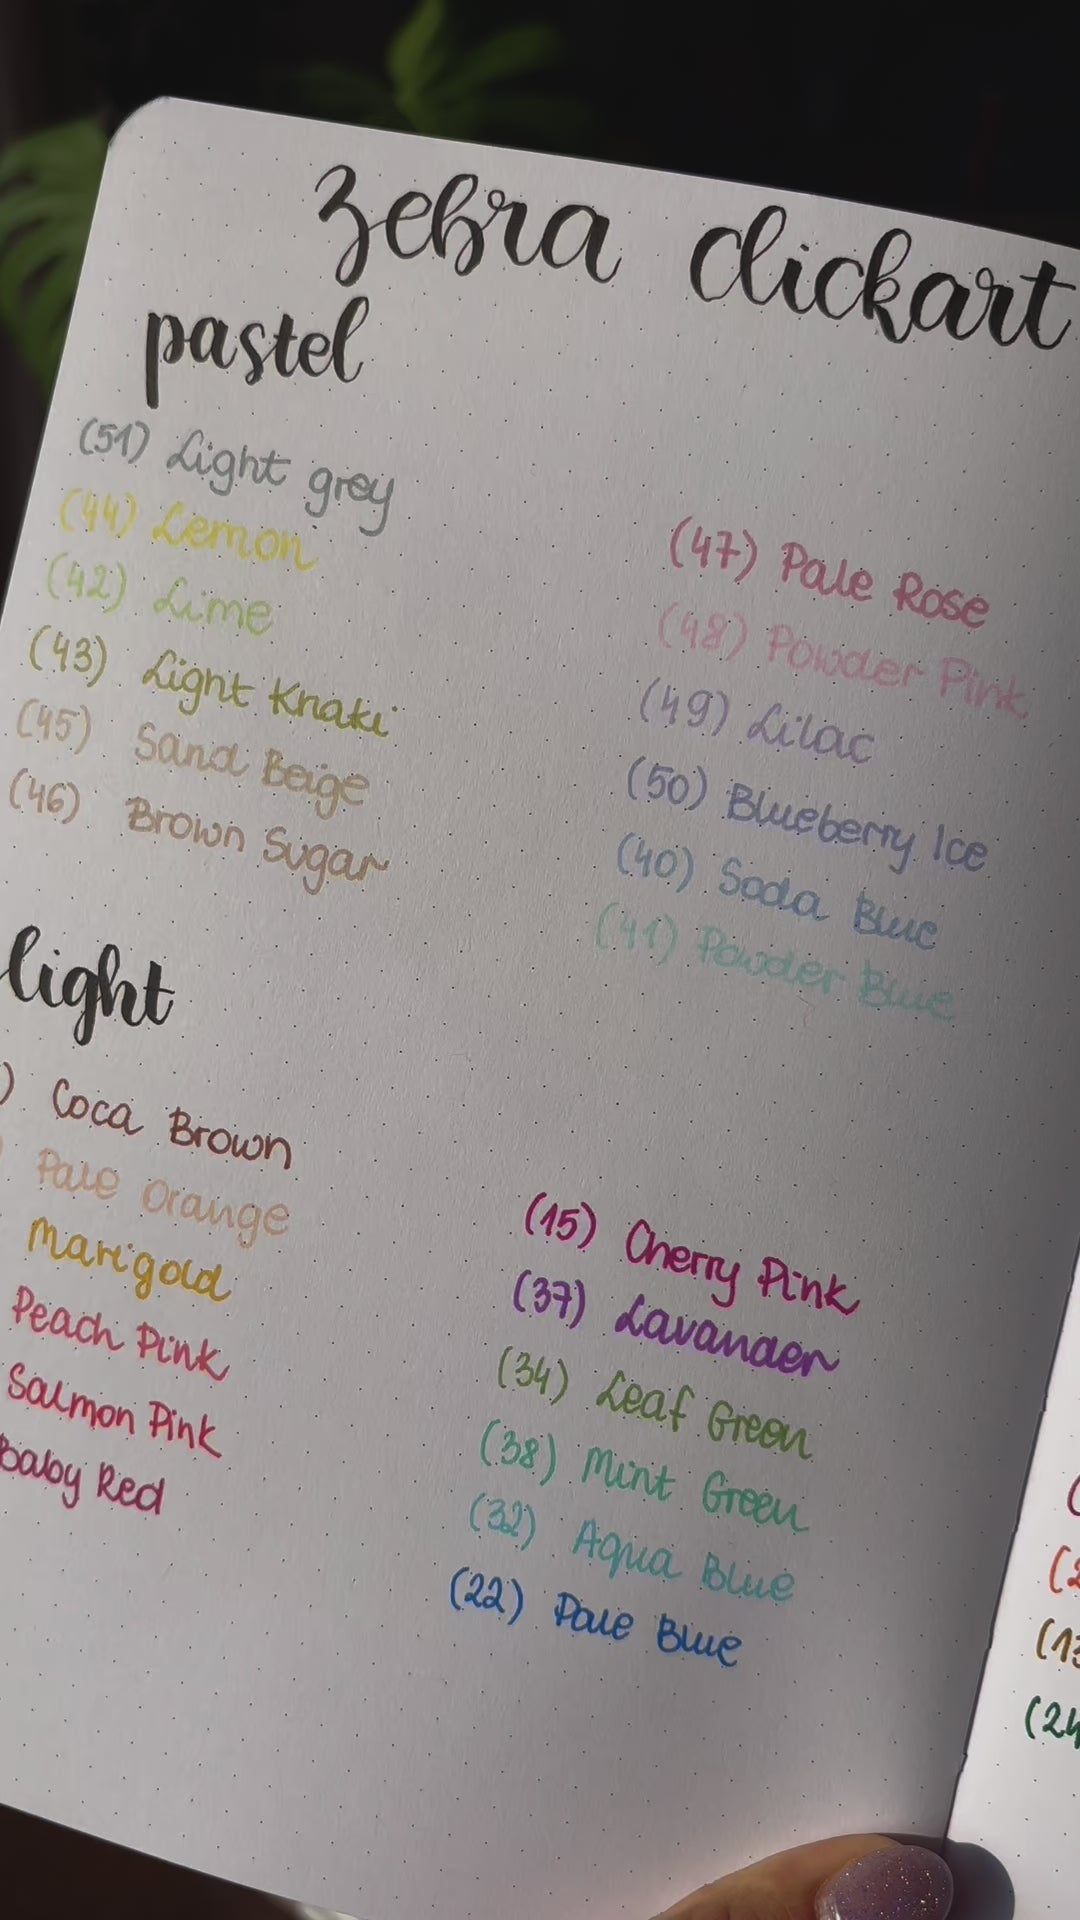 Zebra clickart
pastel
(51) Light grey
(44) Lemon
(42) Lime
(43) Light Khaki
(45) Sand Beige
(46) Brown Sugar
(47) Pale Rose
(48) Powder Pink
(49) Lilac
(50) Blueberry Ice
(40) Soda Blue
(41) Powder Blue
light
) Coca Brown
Pale Orange
Marigold
Peach Pink
Salmon Pink
Baby Red
(15) Cherry Pink
(37) Lavander
(34) Leaf Green
(38) Mint Green
(32) Aqua Blue
(22) Pale Blue
(
(2
(13
(24